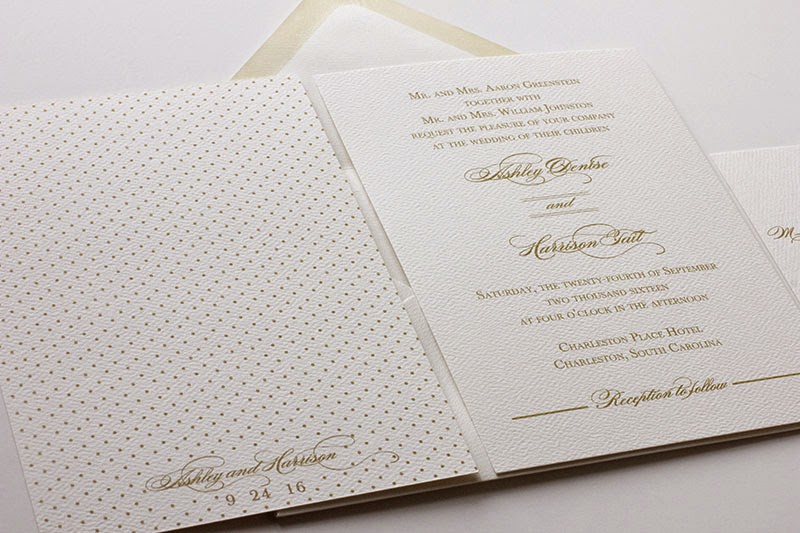 Ashley and Harrison
9 24 16
Mr. and Mrs. Aaron Greenstein
together with
Mr. and Mrs. William Johnston
request the pleasure of your company
at the wedding of their children
Ashley Denise
and
Harrison Tait
Saturday, the twenty-fourth of September
two thousand sixteen
at four o'clock in the afternoon
Charleston Place Hotel
Charleston, South Carolina
Reception to follow